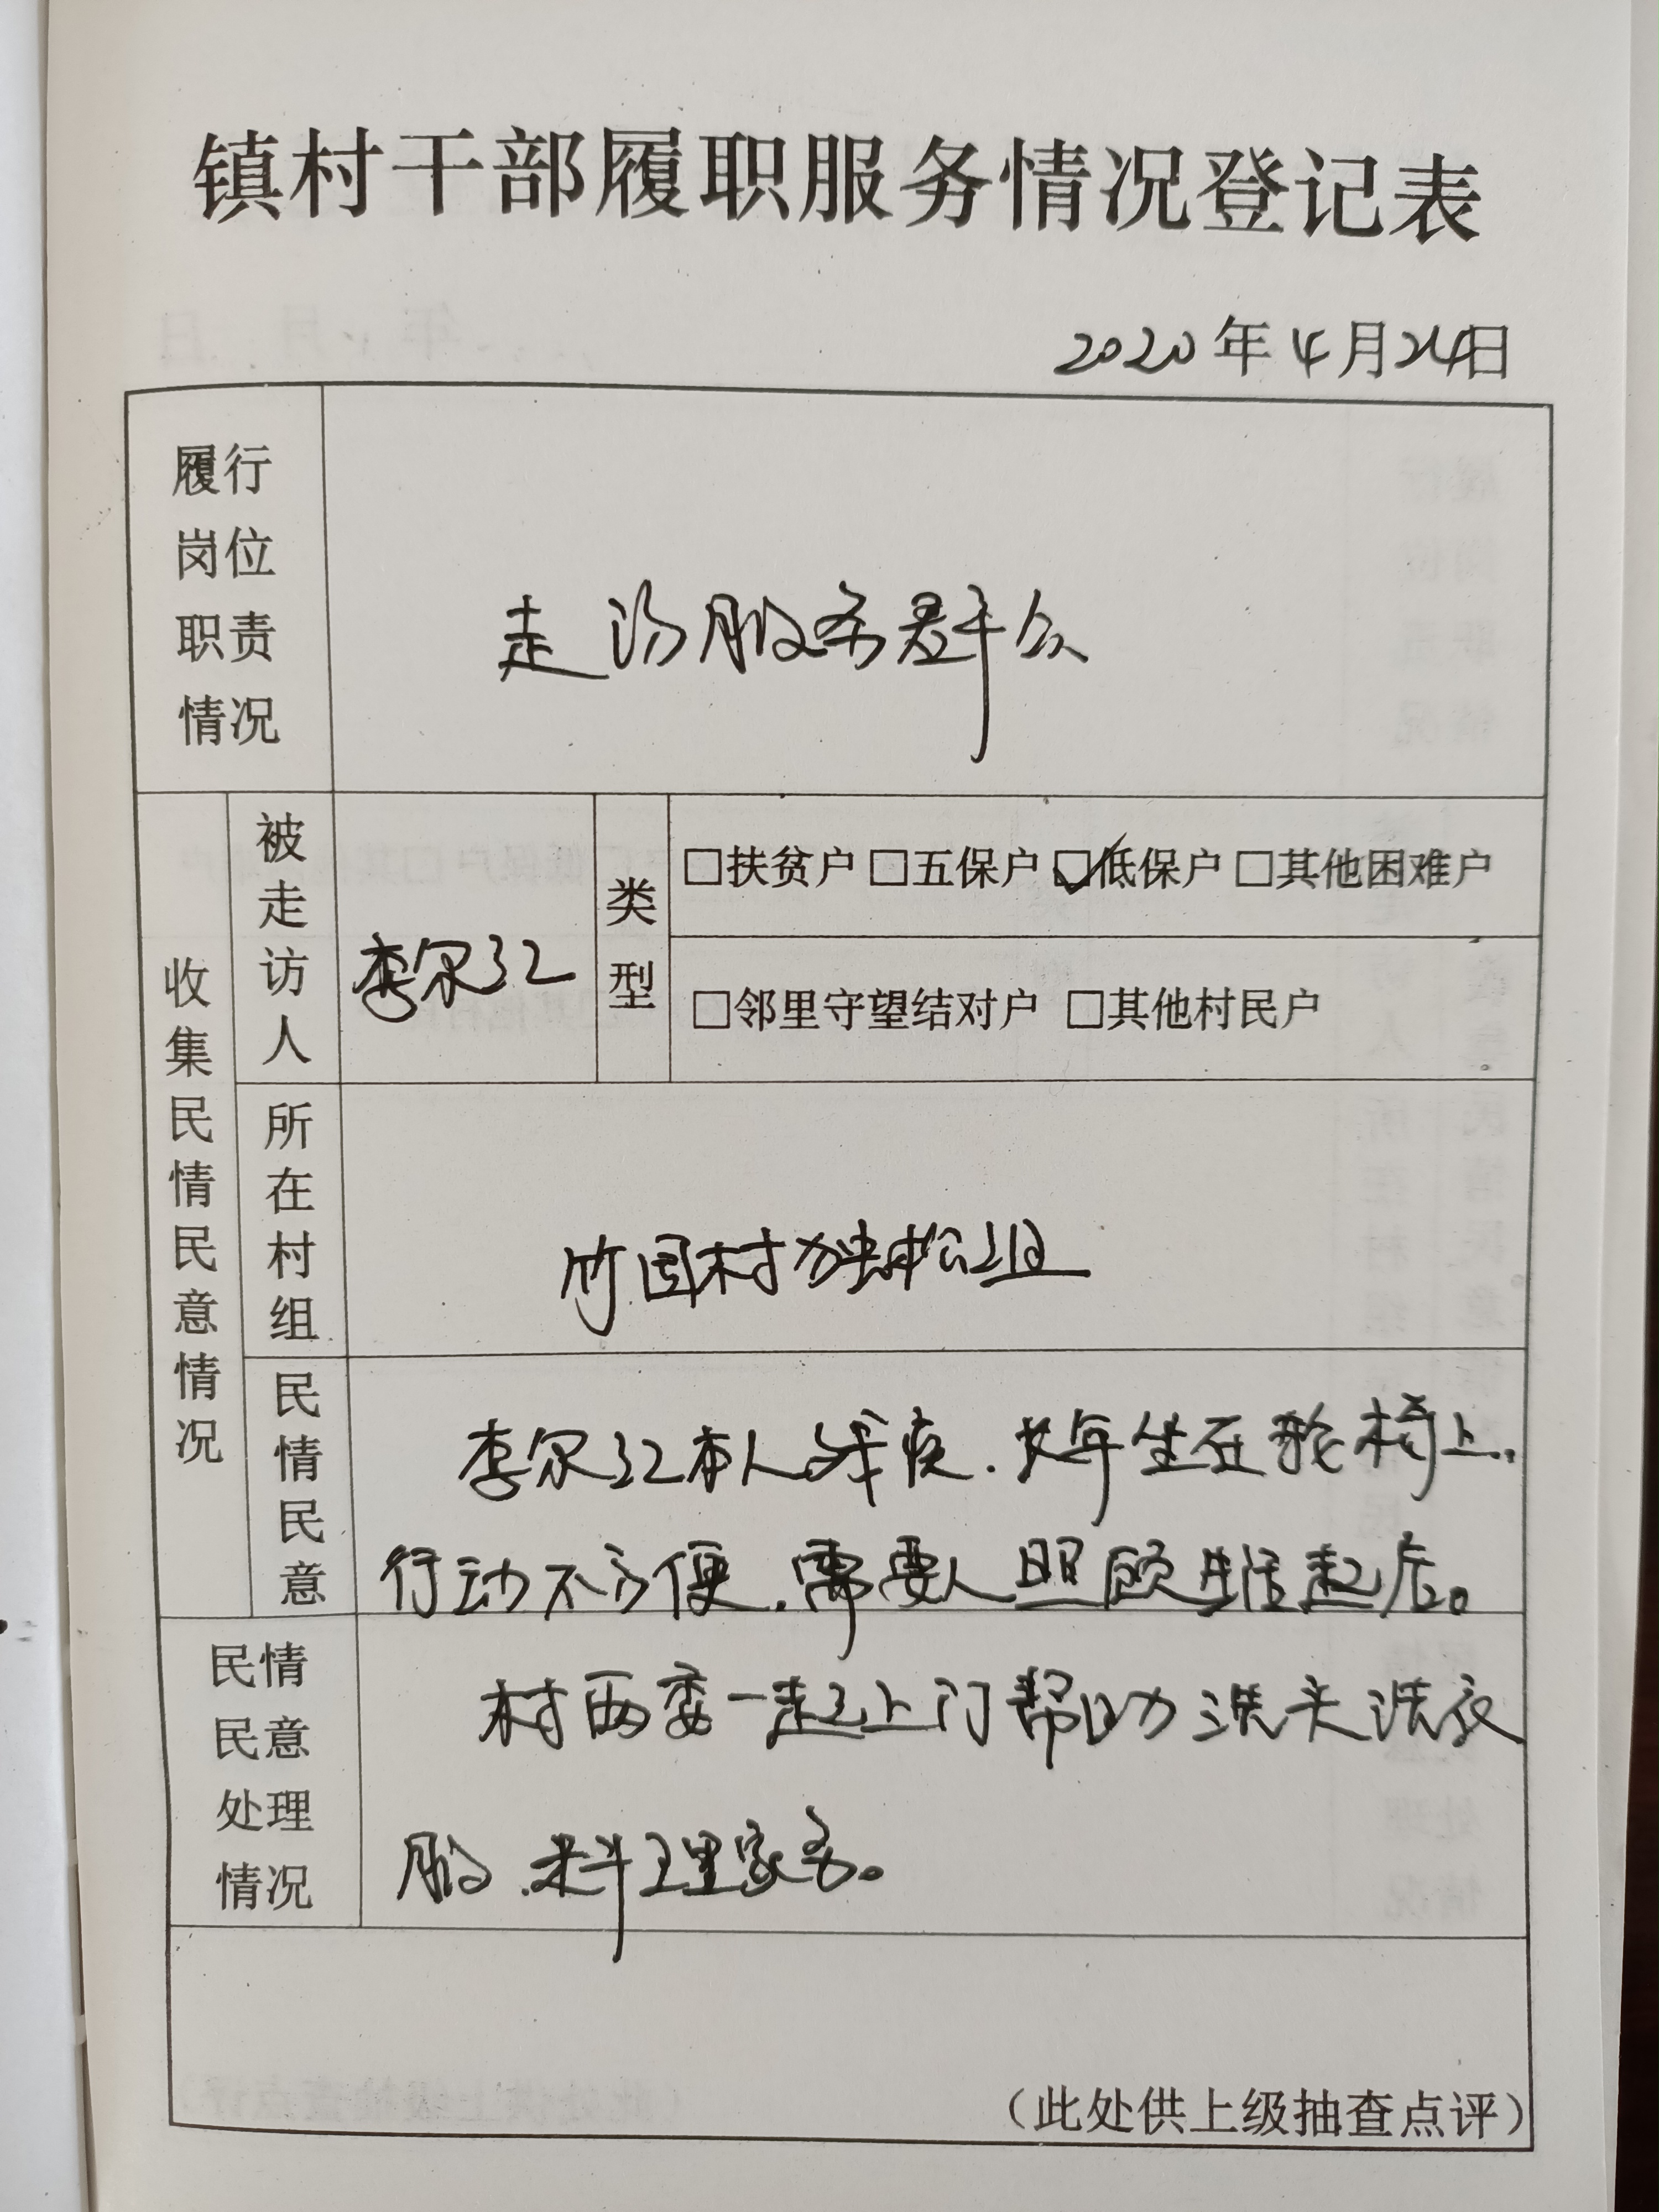 镇村干部履职服务情况登记表
2020年4月24日
履行
岗位
职责
情况
走访服务群众
收集民情民意情况
被走访人
李
类型
□扶贫户 □五保户 ☑低保户 □其他困难户
□邻里守望结对户 □其他村民户
所在村组
竹园村 松组
民情民意
李 本人残疾.长年坐在轮椅上,
行动不方便.需要人照顾生活起居。
民情
民意
处理
情况
村两委一起上门帮助洗头洗衣
服.料理家务。
(此处供上级抽查点评)